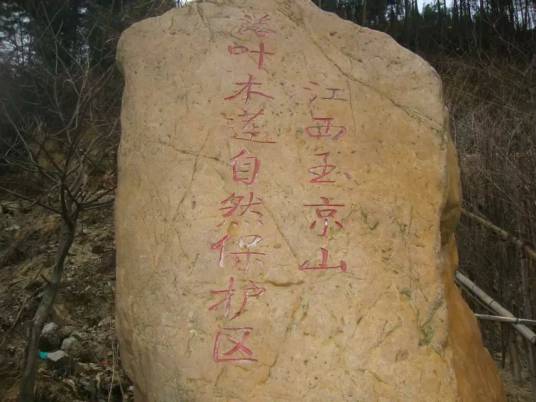 江西玉京山
落叶木莲自然保护区